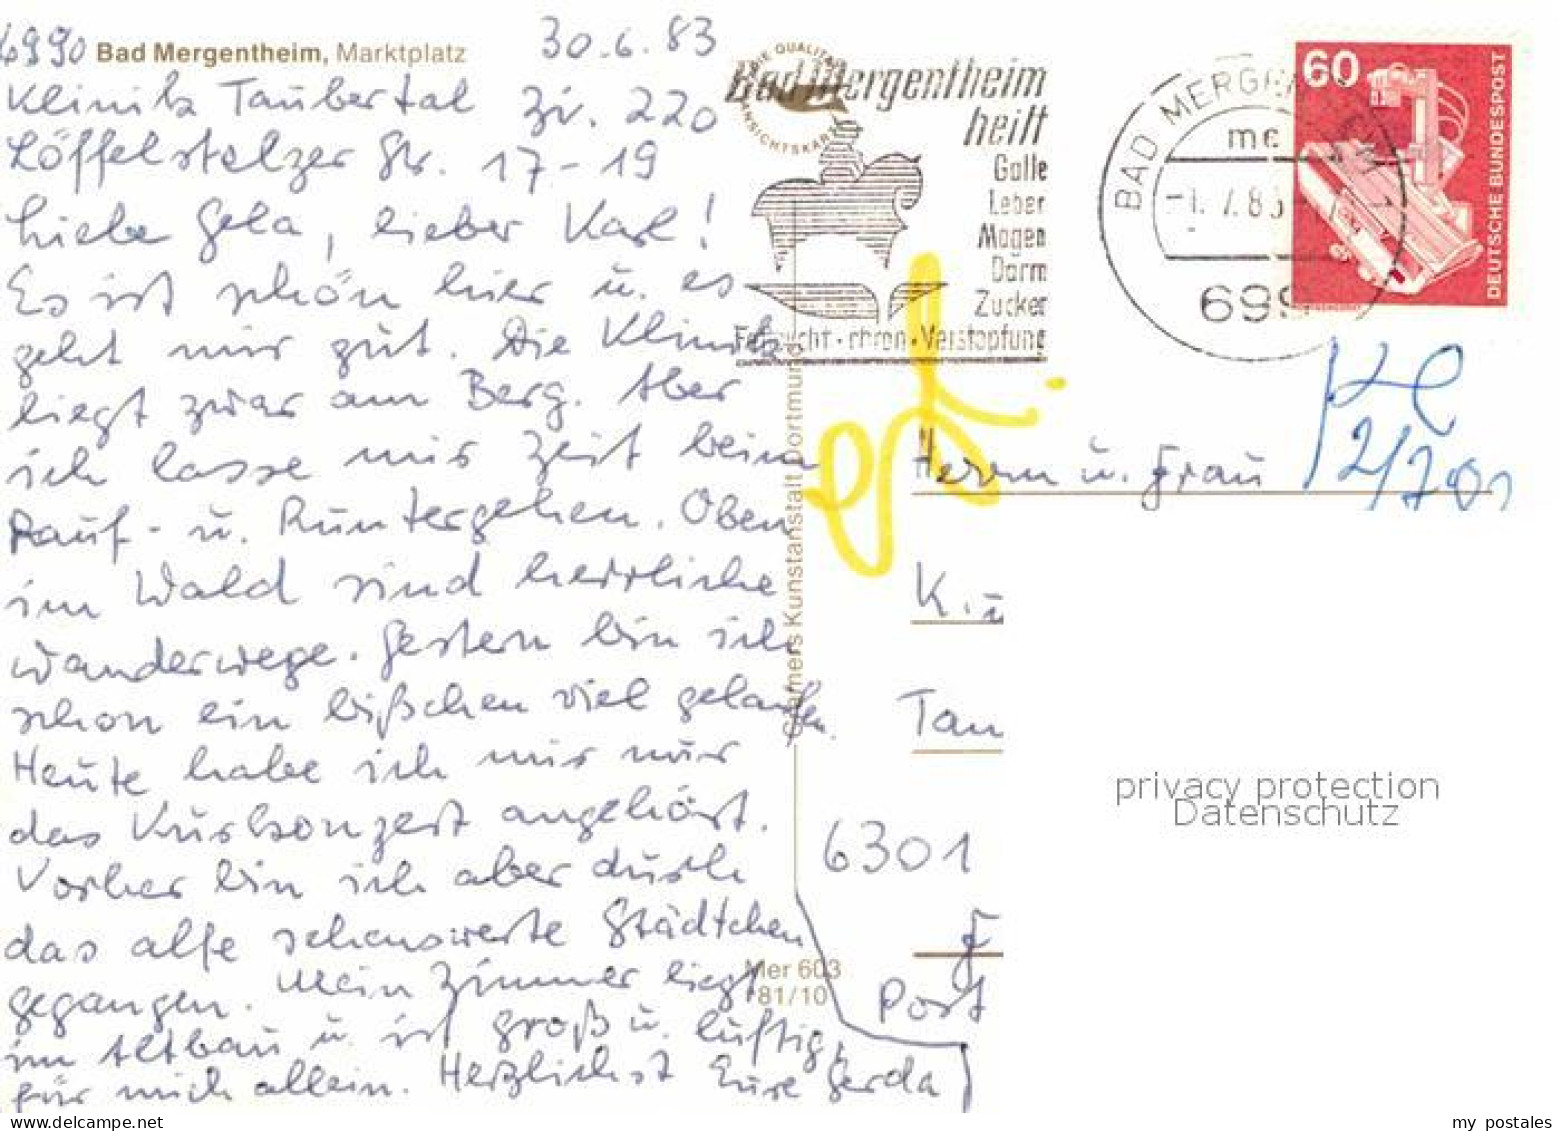 6990 Bad Mergentheim, Marktplatz 30.6.83
Klinik Taubertal Zi. 220
Löffelstelzer Str. 17-19
Liebe Gela, lieber Karl!
Es ist schön hier u. es
geht mir gut. Die Klinik
liegt zwar am Berg. Aber
ich lasse mir Zeit beim
Rauf- u. Runtergehen. Oben
im Wald sind herrliche
Wanderwege. Gestern bin ich
schon ein bißchen viel gelaufen.
Heute habe ich mir nur
das Kurkonzert angehört.
Vorher bin ich aber durch
das alte sehenswerte Städtchen
gegangen. Mein Zimmer liegt
im Altbau u. ist groß u. luftig,
für mich allein. Herzlichst Eure Gerda
Cramers Kunstanstalt Dortmund
Mer 603
81/10
DIE QUALITÄTS
ANSICHTSKARTE
Bad Mergentheim
heilt
Galle
Leber
Magen
Darm
Zucker
Fettsucht · chron · Verstopfung
BAD MERGENTHEIM 1
me
-1.7.83
699
60
DEUTSCHE BUNDESPOST
2/7
Herrn u. Frau
K. u
Tau
6301
Post
privacy protection
Datenschutz
my postales